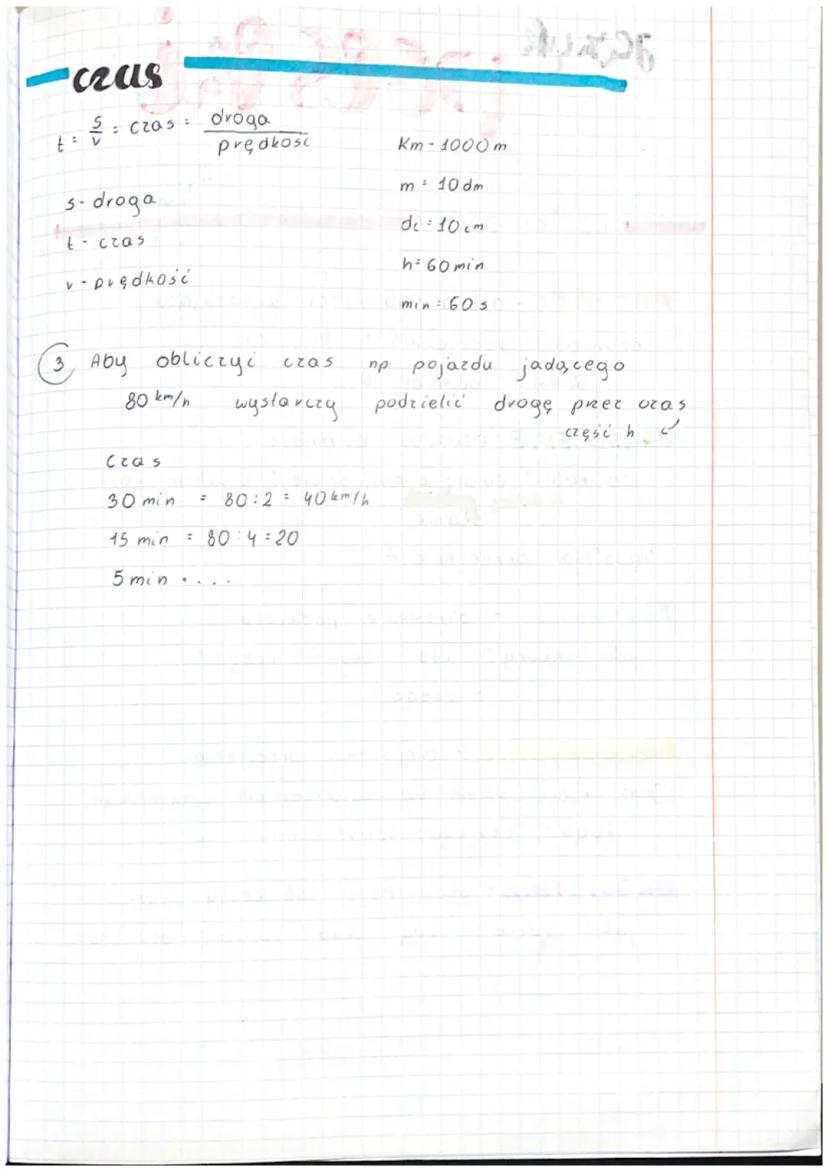 czas
t = s/v = czas = droga / prędkość
Km - 1000 m
m = 10 dm
s - droga
dc = 10 cm
t - czas
h = 60 min
v - prędkość
min = 60 s
3, Aby obliczyć czas np pojazdu jadącego
80 km/h wystarczy podzielić drogę przez czas
część h
Czas
30 min = 80:2 = 40 km/h
15 min = 80:4=20
5 min ....